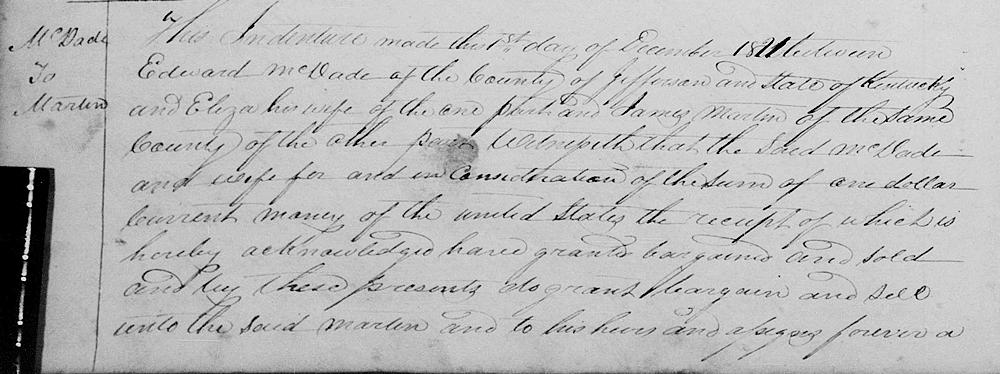 McDade
To
Martin
This Indenture made this 1st day of December 1821 between
Edward McDade of the County of Jefferson and State of Kentucky
and Eliza his wife of the one part and James Martin of the same
County of the other part Witnesseth that the said McDade
and wife for and in Consideration of the sum of one dollar
Current money of the united States the receipt of which is
hereby acknowledged have granted bargained and sold
and by these presents do grant bargain and sell
unto the said Martin and to his heirs and assigns forever a